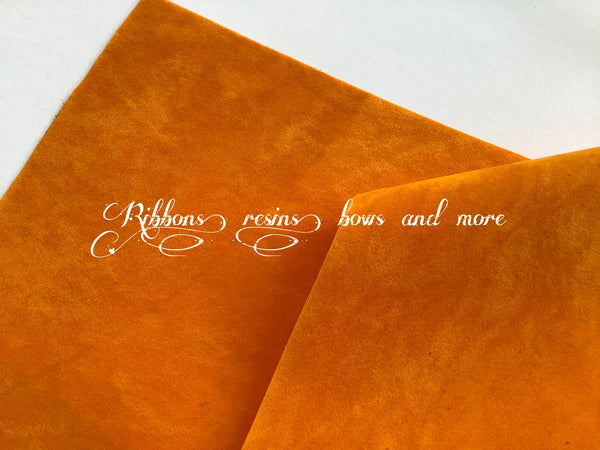 Ribbons resins bows and more